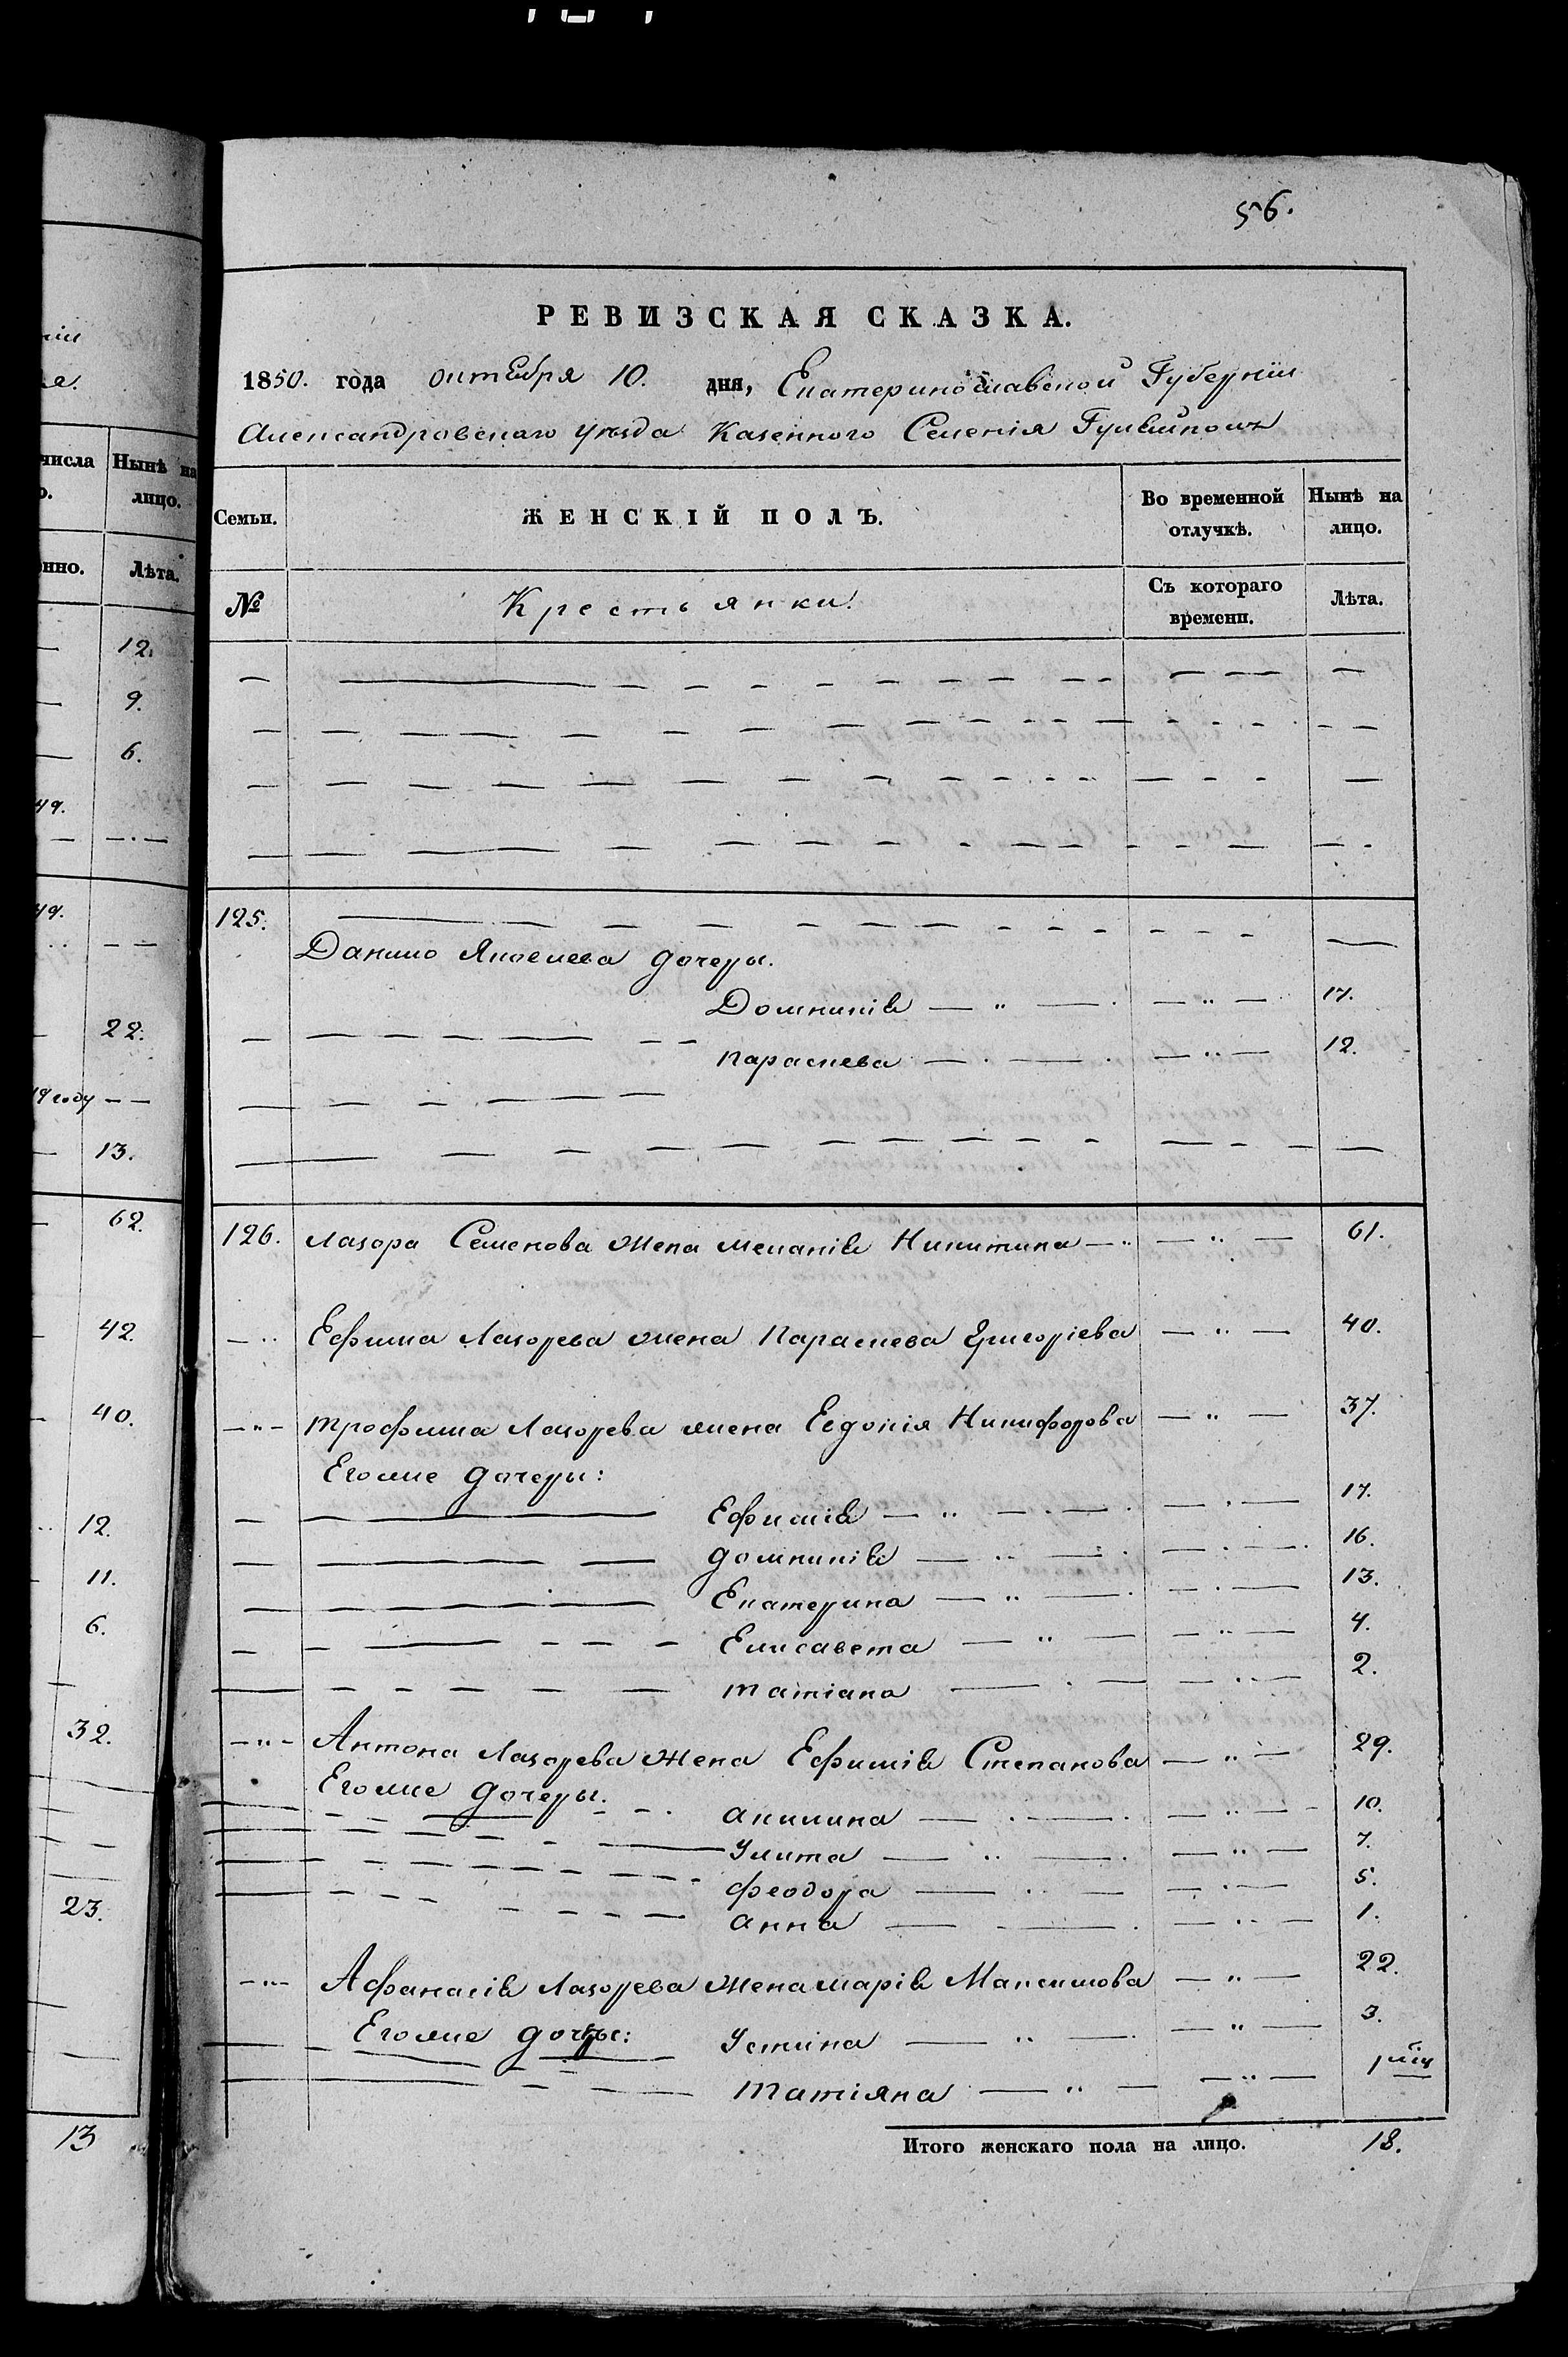 нiи
ка.
числа Нынѣ на
о. лицо.
нно. Лѣта.
12.
9.
6.
49.
49.
22.
49 году
13.
62.
42.
40.
12.
11.
6.
32.
23.
13
56.
РЕВИЗСКАЯ СКАЗКА.
1850. года октября 10. дня, Екатеринославской Губерніи
Александровскаго уѣзда Казенного Селенія Гуляйполя
Семьи. ЖЕНСКІЙ ПОЛЪ. Во временной отлучкѣ. Нынѣ на лицо.
№ Крестьянки. Съ котораго времени. Лѣта.
125.
Данило Яковлева дочеры.
Домникія — " — . — " — 17.
Параскева — . — . — " — 12.
126. Лазора Семенова жена Меланія Никитина — " — " — 61.
— " Ефима Лазорева жена Параскева Григоріева — " — 40.
— " — Трофима Лазорева жена Евдокія Никифорова — " — 37.
Егоже дочеры:
Ефимія — " — . — . — . — 17.
Домникія — " — . — . — . 16.
Екатерина — " — . — . — 13.
Елисавета — " — — " — 4.
Татіана — . — — " — 2.
— " — Антона Лазорева жена Ефимія Степанова — " — 29.
Егоже дочеры.
Акилина — . — . — " — 10.
Улита — " — . — " — 7.
Феодора — " — — . — 5.
Анна — . — . — " — 1.
— " — Афанасія Лазорева жена Марія Максимова — " — 22.
Егоже дочеры: Устина — " — . — " — 3.
Татіяна — " — — " —
Итого женскаго пола на лицо. 18.